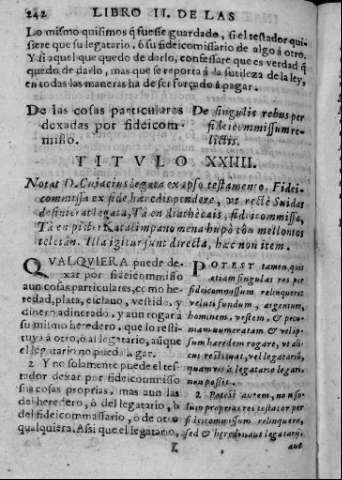 242 LIBRO II. DE LAS
Lo mismo quisimos q̃ fuesse guardado, si el testador quisiere
que su legatario, ò su fideicomissario de algo à otro.
Y si aquel que quedo de darlo, confessare que es verdad q̃
quedo de darlo, mas que se reporta à la sutileza de la ley,
en todas las maneras ha de ser forçado à pagar.
De las cosas particulares
dexadas por fideicomisso.
De singulis rebus per
fideicommissum relictis.
TITVLO XXIIII.
Notat D. Cujacius legata ex apso testamento. Fideicommissa
ex fide hæredis pendere, vt rectè Suidas
definierat legata, Tà en diathècais, fideicommissa,
Tà en pistei Katalimpanomena hupò tòn mellontos
teleutan. Illa igitur sunt directa, hæc non item.
QVALQVIERA puede dexar
por fideicomisso
aun cosas particulares, como heredad,
plata, esclauo, vestido, y
dinero adinerado, y aun rogar à
su mismo heredero, que lo restituya
à otro, ò al legatario, aũque
el legatario no pueda legar.
2 Y no solamente puede el testador
dexar por fideicomisso
sus cosas proprias, mas aun las
del heredero, ò del legatario, ò
del fideicommissario, ò de otro
qualquiera. Assi que el legatario,
POTEST tamen quis
etiam singulas res per
fideicommissum relinquere,
veluti fundum, argentum,
hominem, vestem, & pecuniam
numeratam & vel ipsum
hæredem rogare, vt alicui
restituat, vel legatariũ,
quamvis à legatario legari
non possit.
2 Potest autem, non solum
proprias res testator per
fideicommissum relinquere,
sed & hæredis aut legatarij
aut